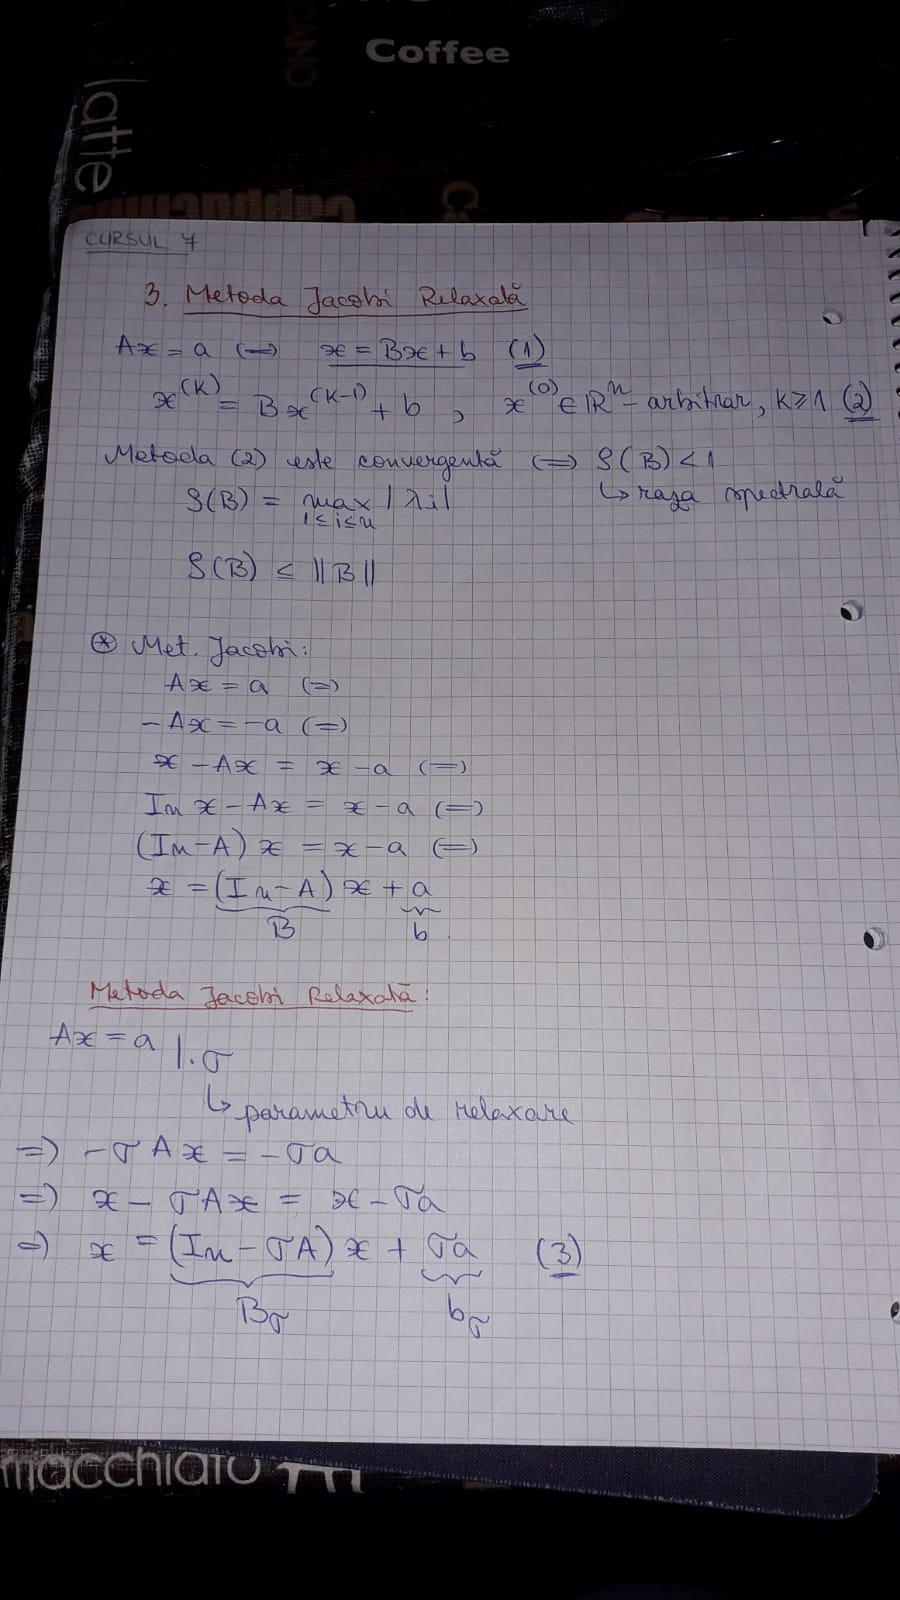 Coffee
CANO
latte
cappuccino
Ca
CURSUL 7
3. Metoda Jacobi Relaxată
Ax = a (=) x = Bx + b (1)
x^(K) = Bx^(K-1) + b , x^(0) ∈ ℝ^n - arbitrar, K ≥ 1 (2)
Metoda (2) este convergentă (=) ρ(B) < 1
ρ(B) = max |λi| ↳ raza spectrală
1≤i≤n
ρ(B) ≤ ||B||
⊛ Met. Jacobi:
Ax = a (=)
-Ax = -a (=)
x - Ax = x - a (=)
In x - Ax = x - a (=)
(In - A) x = x - a (=)
x = (In - A) x + a
B b
Metoda Jacobi Relaxată:
Ax = a |·σ
↳ parametru de relaxare
=) -σAx = -σa
=) x - σAx = x - σa
=) x = (In - σA) x + σa (3)
Bσ bσ
macchiato